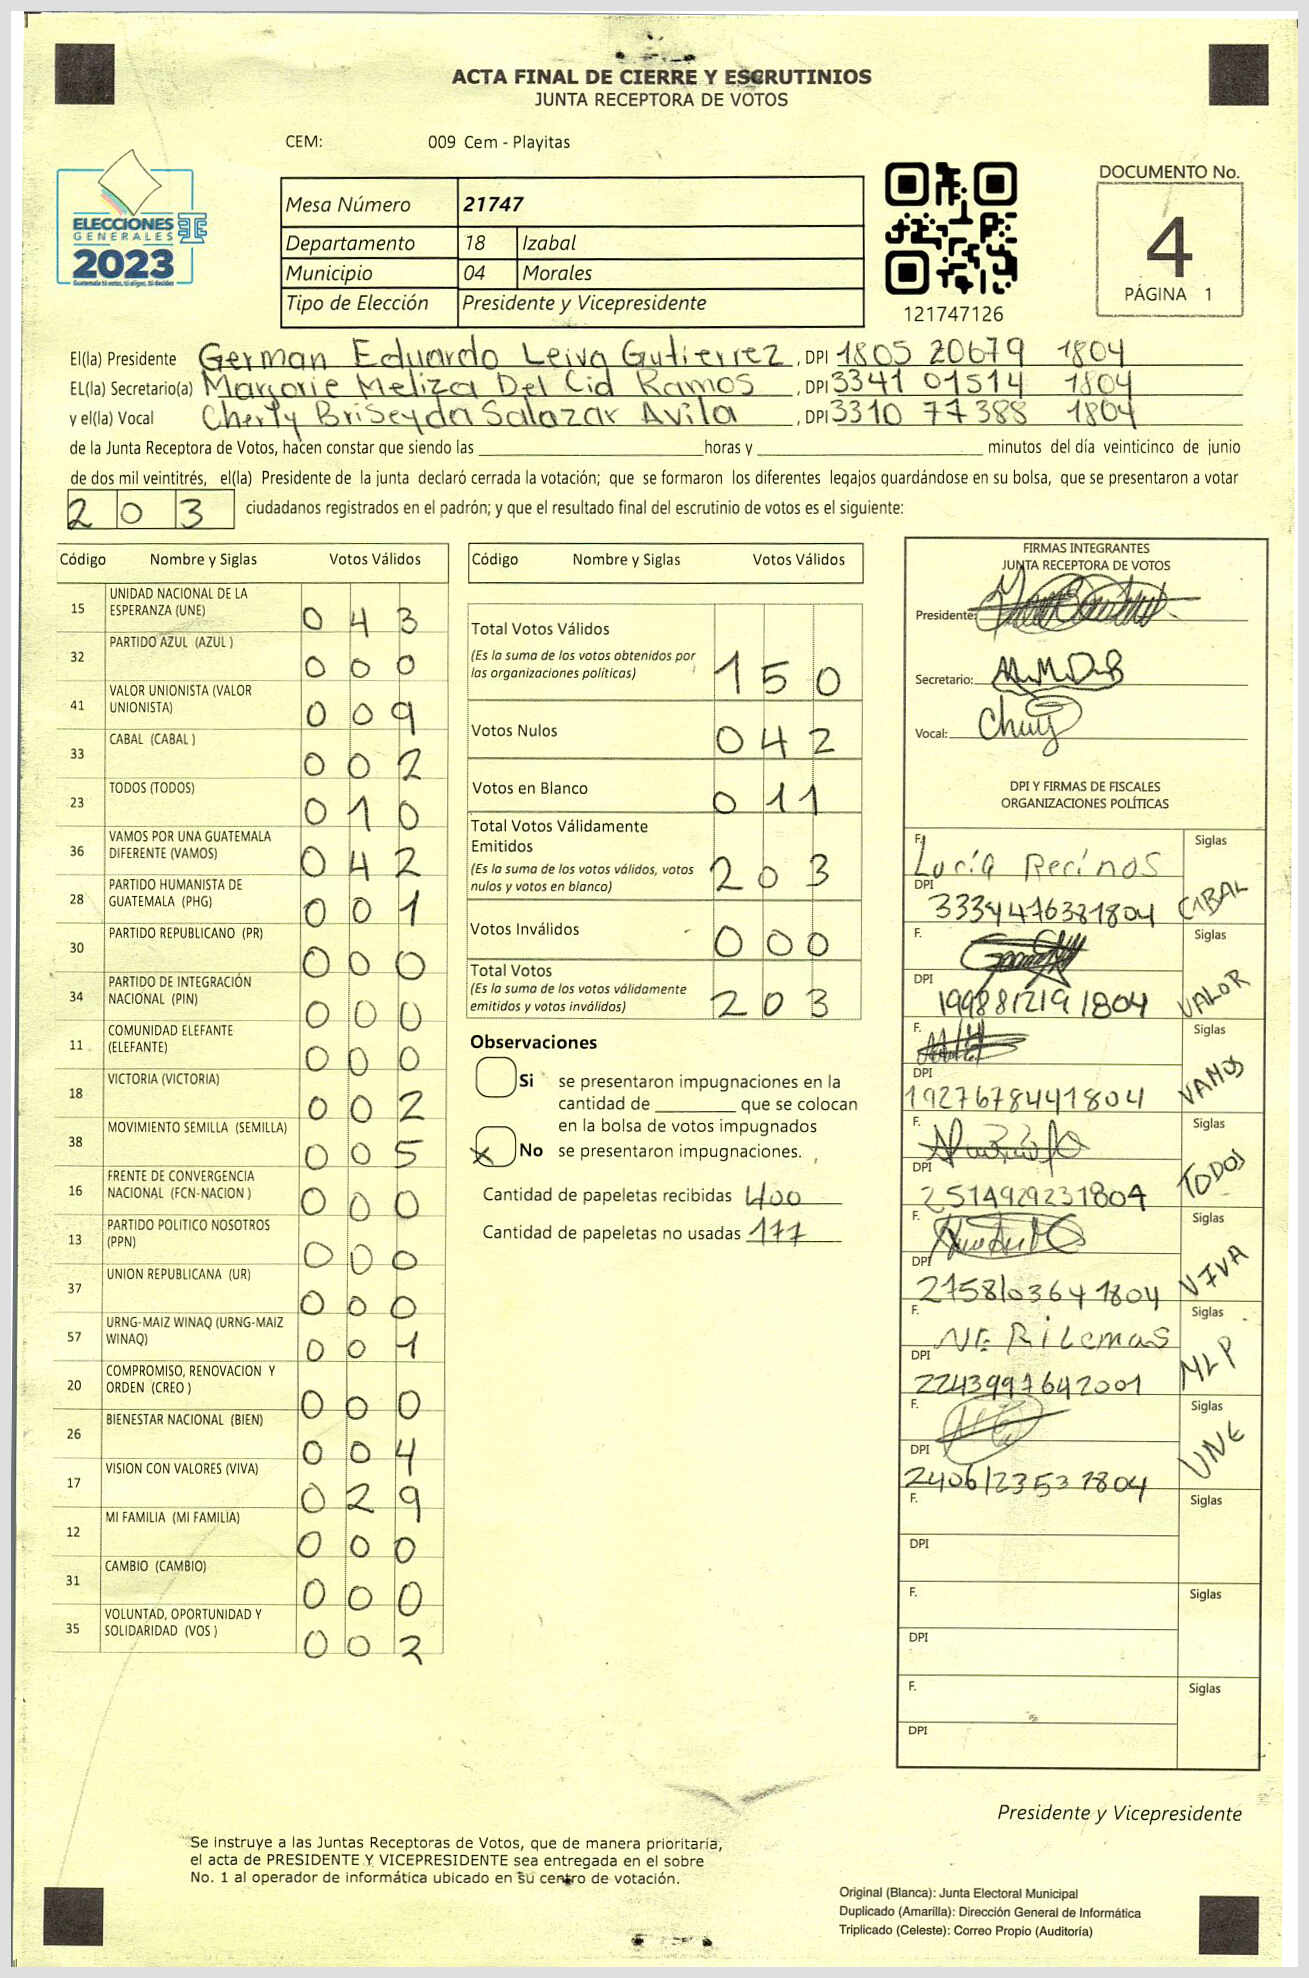 ACTA FINAL DE CIERRE Y ESCRUTINIOS
JUNTA RECEPTORA DE VOTOS
CEM: 009 Cem - Playitas
ELECCIONES
GENERALES
2023
Guatemala tú votas, tú eliges, tú decides
Mesa Número 21747
Departamento 18 Izabal
Municipio 04 Morales
Tipo de Elección Presidente y Vicepresidente
121747126
DOCUMENTO No.
4
PÁGINA 1
El(la) Presidente German Eduardo Leiva Gutierrez , DPI 1805 20679 1804
EL(la) Secretario(a) Marjorie Meliza Del Cid Ramos , DPI 3341 01514 1804
y el(la) Vocal Cherly Briseyda Salazar Avila , DPI 3310 77388 1804
de la Junta Receptora de Votos, hacen constar que siendo las ____ horas y ____ minutos del día veinticinco de junio
de dos mil veintitrés, el(la) Presidente de la junta declaró cerrada la votación; que se formaron los diferentes legajos guardándose en su bolsa, que se presentaron a votar
203 ciudadanos registrados en el padrón; y que el resultado final del escrutinio de votos es el siguiente:
Código Nombre y Siglas Votos Válidos
15 UNIDAD NACIONAL DE LA ESPERANZA (UNE) 043
32 PARTIDO AZUL (AZUL ) 000
41 VALOR UNIONISTA (VALOR UNIONISTA) 009
33 CABAL (CABAL ) 002
23 TODOS (TODOS) 010
36 VAMOS POR UNA GUATEMALA DIFERENTE (VAMOS) 042
28 PARTIDO HUMANISTA DE GUATEMALA (PHG) 001
30 PARTIDO REPUBLICANO (PR) 000
34 PARTIDO DE INTEGRACIÓN NACIONAL (PIN) 000
11 COMUNIDAD ELEFANTE (ELEFANTE) 000
18 VICTORIA (VICTORIA) 002
38 MOVIMIENTO SEMILLA (SEMILLA) 005
16 FRENTE DE CONVERGENCIA NACIONAL (FCN-NACION ) 000
13 PARTIDO POLITICO NOSOTROS (PPN) 000
37 UNION REPUBLICANA (UR) 000
57 URNG-MAIZ WINAQ (URNG-MAIZ WINAQ) 001
20 COMPROMISO, RENOVACION Y ORDEN (CREO ) 000
26 BIENESTAR NACIONAL (BIEN) 004
17 VISION CON VALORES (VIVA) 029
12 MI FAMILIA (MI FAMILIA) 000
31 CAMBIO (CAMBIO) 000
35 VOLUNTAD, OPORTUNIDAD Y SOLIDARIDAD (VOS ) 002
Código Nombre y Siglas Votos Válidos
Total Votos Válidos
(Es la suma de los votos obtenidos por
las organizaciones políticas) 150
Votos Nulos 042
Votos en Blanco 011
Total Votos Válidamente
Emitidos
(Es la suma de los votos válidos, votos
nulos y votos en blanco) 203
Votos Inválidos 000
Total Votos
(Es la suma de los votos válidamente
emitidos y votos inválidos) 203
Observaciones
Si se presentaron impugnaciones en la
cantidad de ____ que se colocan
en la bolsa de votos impugnados
X No se presentaron impugnaciones.
Cantidad de papeletas recibidas 400
Cantidad de papeletas no usadas 177
FIRMAS INTEGRANTES
JUNTA RECEPTORA DE VOTOS
Presidente:
Secretario: M.M.D.R
Vocal:
DPI Y FIRMAS DE FISCALES
ORGANIZACIONES POLÍTICAS
F. Lucía Recinos Siglas CABAL
DPI 3334476381804
F. Siglas VALOR
DPI 1998812191804
F. Siglas VAMOS
DPI 1927678441804
F. Siglas TODOS
DPI 2514929231804
F. Siglas VIVA
DPI 2758103641804
F. Siglas MLP
DPI 2243997642001
F. Siglas UNE
DPI 2406123531804
F. Siglas
DPI
F. Siglas
DPI
F. Siglas
DPI
Presidente y Vicepresidente
Se instruye a las Juntas Receptoras de Votos, que de manera prioritaria,
el acta de PRESIDENTE Y VICEPRESIDENTE sea entregada en el sobre
No. 1 al operador de informática ubicado en su centro de votación.
Original (Blanca): Junta Electoral Municipal
Duplicado (Amarilla): Dirección General de Informática
Triplicado (Celeste): Correo Propio (Auditoría)